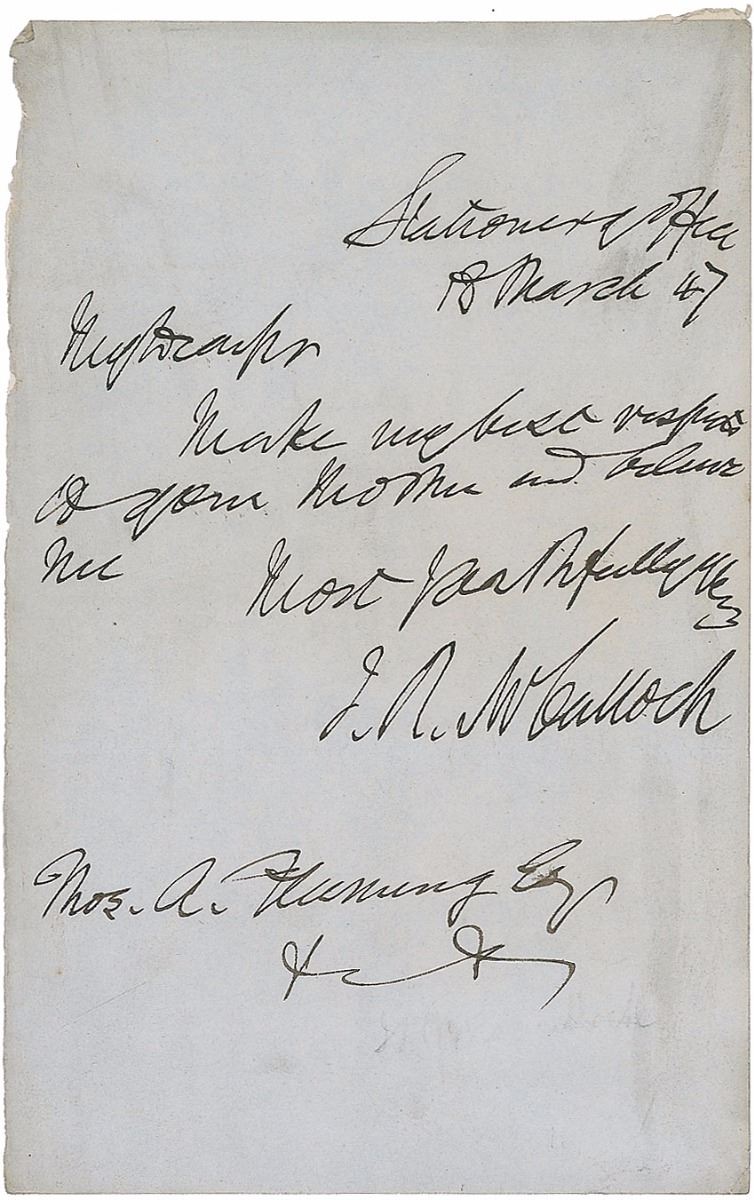 Stationery Office
18 March 47
My dear Sir
Make my best respects
to your Mother and believe
me Most faithfully yrs
J. R. McCulloch
Thos. A. Fleming Esq
&c &c